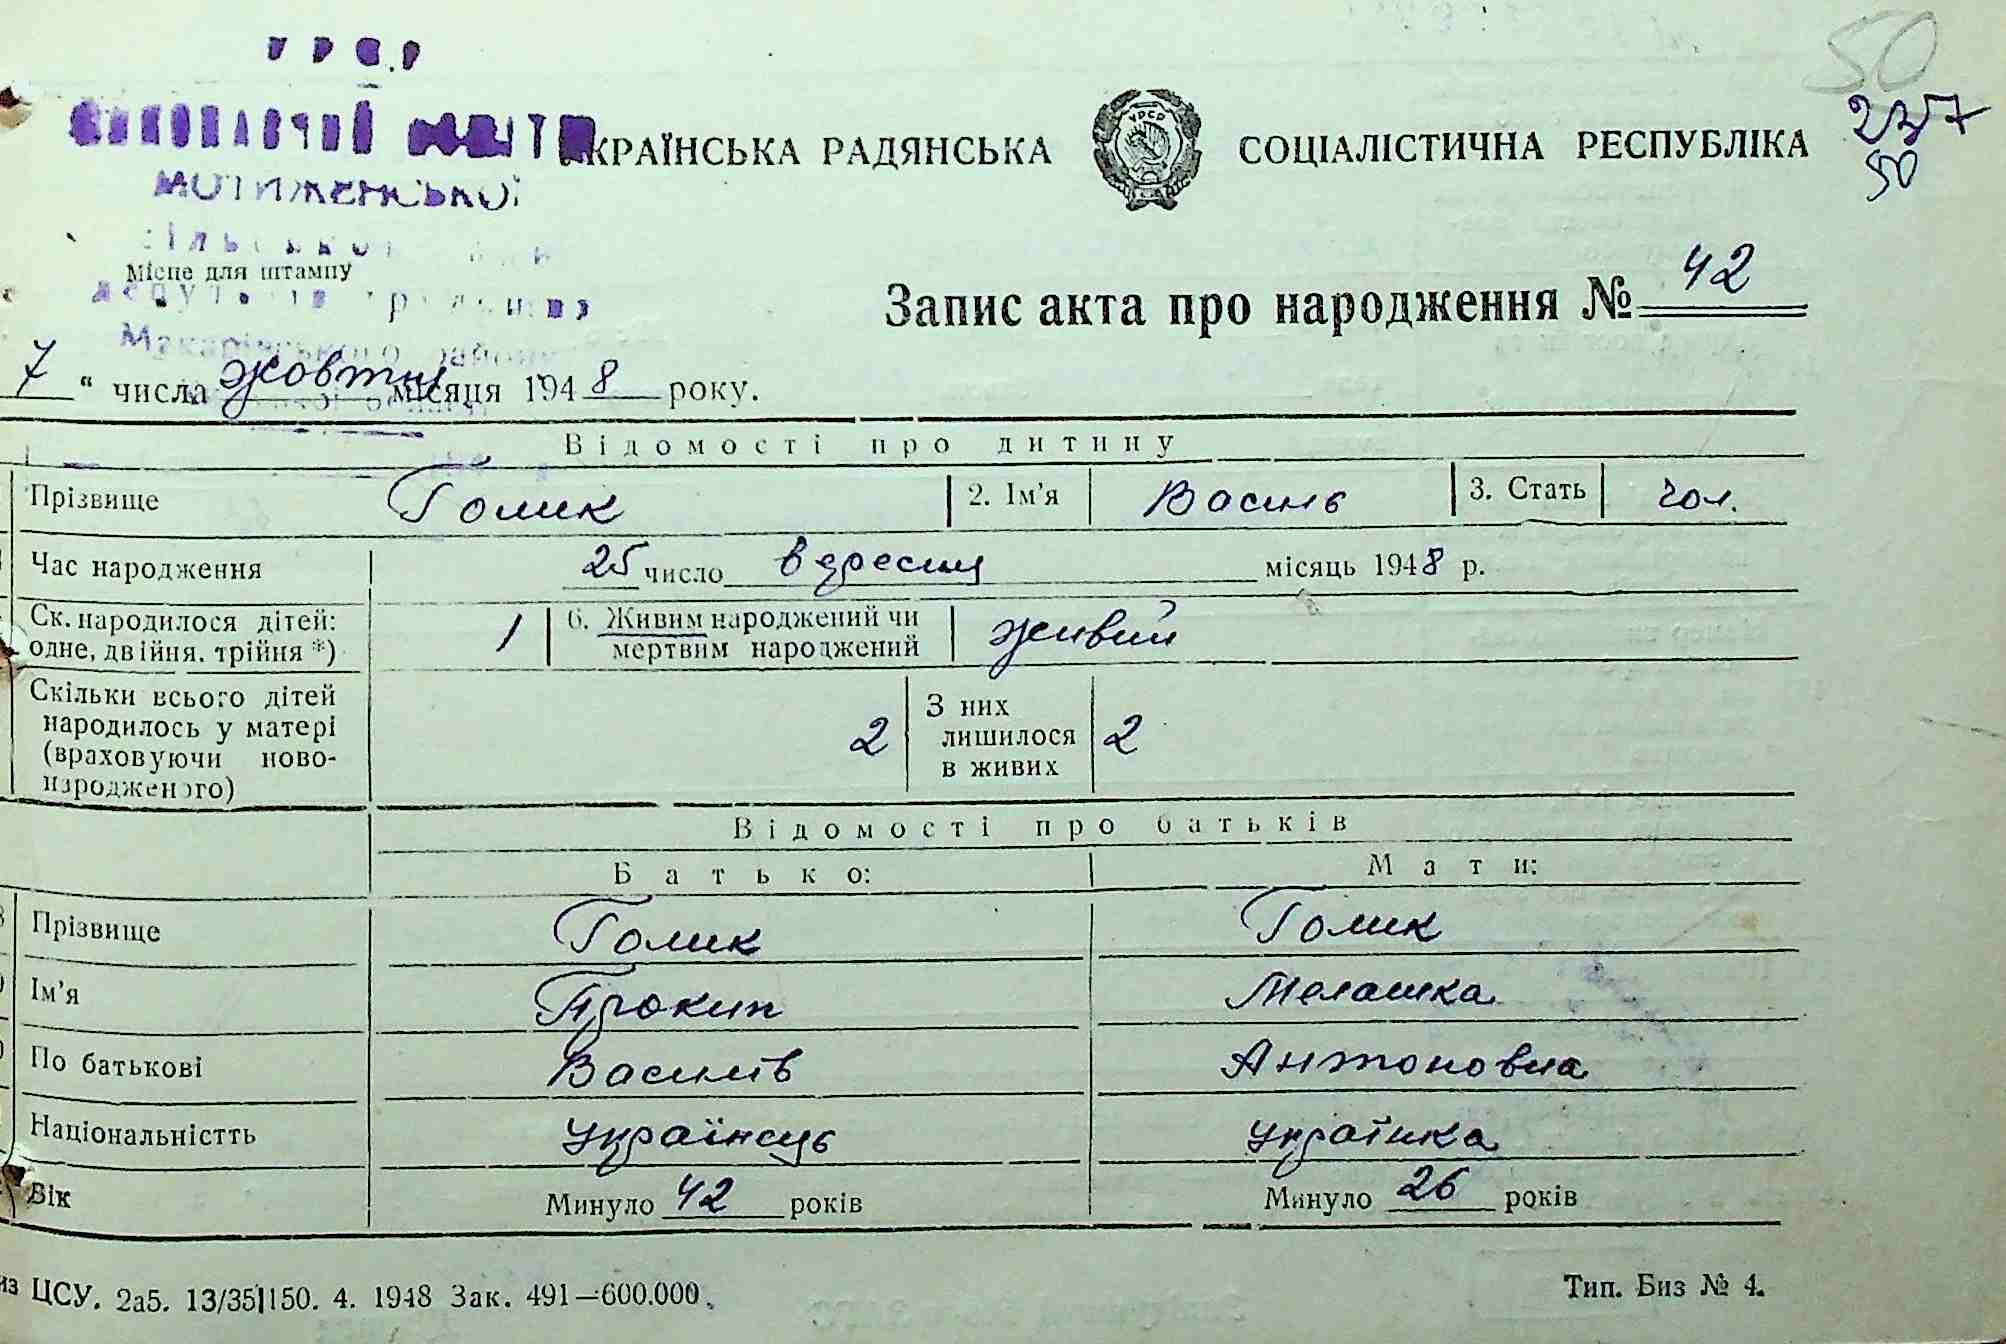 УРСР
ВИКОНАВЧИЙ КОМІТЕТ
УКРАЇНСЬКА РАДЯНСЬКА СОЦІАЛІСТИЧНА РЕСПУБЛІКА
50
237
50
МОТИЖЕНСЬКОЇ
Місце для штампу
Запис акта про народження № 42
Макарівського району
7 " числа жовтня місяця 1948 року.
Відомості про дитину
Прізвище Голик 2. Ім'я Василь 3. Стать чол.
Час народження 25 число вересня місяць 1948 р.
Ск. народилося дітей: одне, двійня. трійня *) 1 6. Живим народжений чи мертвим народжений живий
Скільки всього дітей народилось у матері (враховуючи ново-народженого) 2 З них лишилося в живих 2
Відомості про батьків
Батько: Мати:
Прізвище Голик Голик
Ім'я Прокип Мелашка
По батькові Василів Антоновна
Національністть українець українка
Вік Минуло 42 років Минуло 26 років
ЦСУ. 2а5. 13/35|150. 4. 1948 Зак. 491—600.000. Тип. Биз № 4.